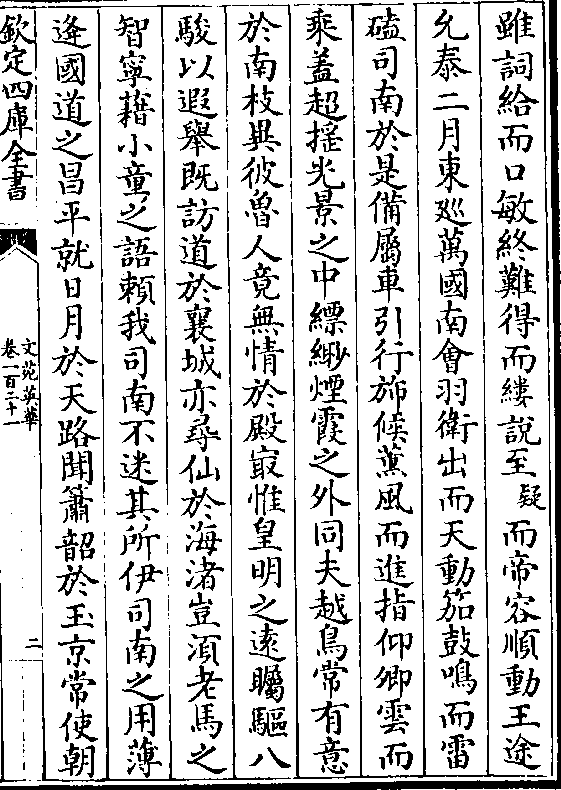 雖詞給而口敏終難得而縷說至疑而帝容順動王途
允泰二月東廵萬國南會羽衛出而天動笳鼓鳴而雷
磕司南於是備屬車引行斾候薫風而進指仰卿雲而
乘盖超摇光景之中縹緲煙霞之外同夫越鳥常有意
於南枝異彼魯人竟無情於殿㝡惟皇明之遠矚驅八
駿以遐舉既訪道於襄城亦尋仙於海渚豈湏老馬之
智寜藉小童之語頼我司南不迷其所伊司南之用薄
逢國道之昌平就日月於天路聞簫韶於玉京常使朝
欽定四庫全書
文苑英華
卷一百二十一
二